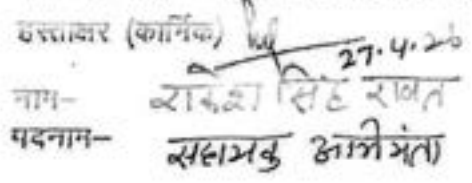 हस्ताक्षर (कार्मिक)
27.4.26
नाम- राकेश सिंह रावत
पदनाम- सहायक अभियंता